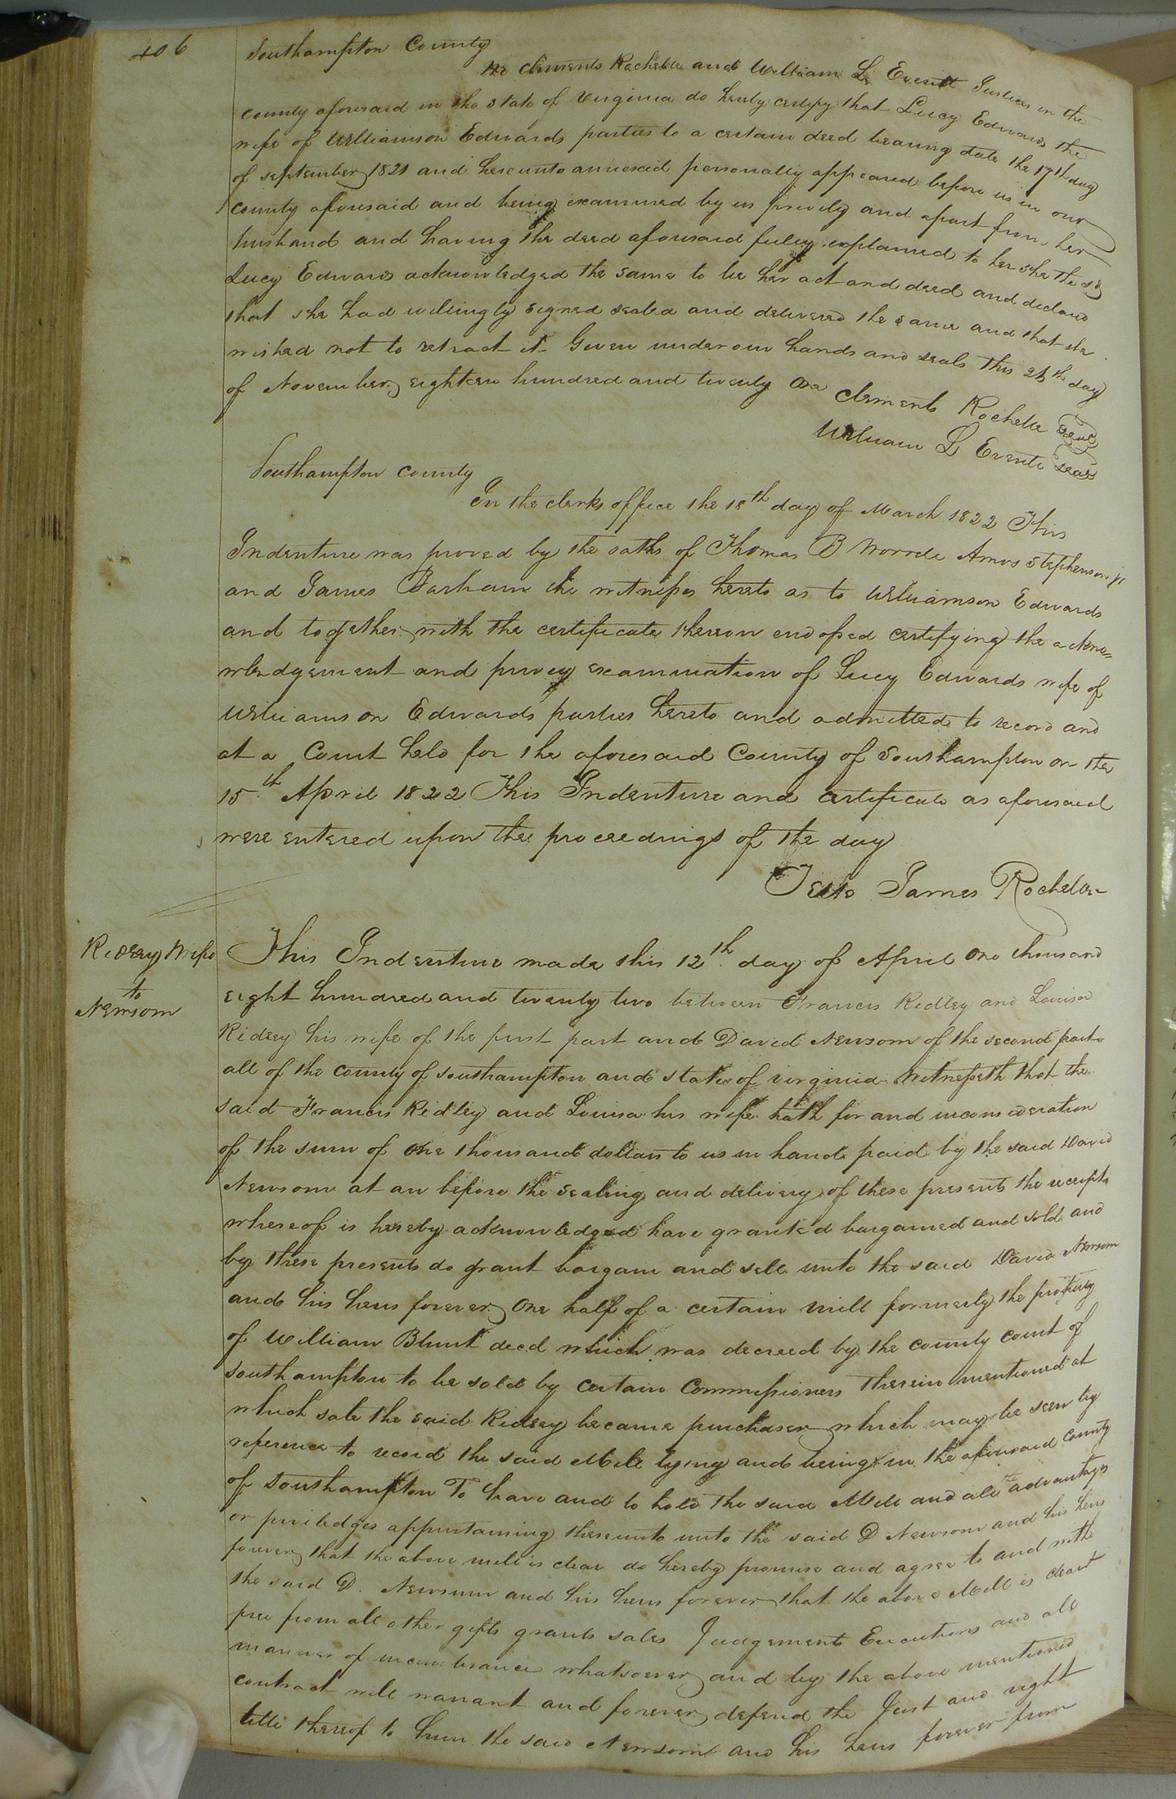 406
Southampton County
We Clements Rochelle and William L Everitt Justices in the
county aforesaid in the state of Virginia do hereby certify that Lucy Edwards the
wife of Williamson Edwards parties to a certain deed bearing date the 17th day
of september 1821 and hereunto annexed personally appeared before us in our
county aforesaid and being examined by us privily and apart from her
husband and having the deed aforesaid fully explained to her she the sd
Lucy Edwards acknowledged the same to be her act and deed and declared
that she had willingly signed sealed and delivered the same and that she
wished not to retract it Given under our hands and seals this day
of November eighteen hundred and twenty One
Clements Rochelle seal
William L Everitt seal
Southampton County
In the clerks office the 18th day of March 1822 This
Indenture was proved by the oaths of Thomas B Amos Stephenson jr
and James Barham the witnesses hereto as to Williamson Edwards
and together with the certificate thereon endorsed certifying the ackno=
wledgement and privy examination of Lucy Edwards wife of
Williamson Edwards parties hereto and admitted to record and
at a Court held for the aforesaid County of Southampton on the
15th April 1822 This Indenture and certificate as aforesaid
were entered upon the proceedings of the day
Teste James Rochelle
Ridley & Wife
to
Newsom
This Indenture made this 12th day of April One thousand
eight hundred and twenty two between Francis Ridley and Louisa
Ridley his wife of the first part and David Newsom of the second part
all of the county of southampton and state of virginia Witnesseth that the
said Francis Ridley and Louisa his wife hath for and inconsideration
of the sum of One thousand dollars to us in hand paid by the said David
Newsom at an before the sealing and delivery of these presents the receipt
whereof is hereby acknowledged have grant'd bargained and sold and
by these presents do grant bargain and sell unto the said David Newsom
and his heirs forever One half of a certain mill formerly the property
of William Blunt decd which was decreed by the county court of
southampton to be sold by certain Commissioners therein mentioned at
which sale the said Ridley became purchaser which may be seen by
reference to record the said Mill lying and being in the aforesaid county
of Southampton To have and to hold the said Mill and all the advantages
or priviledges appertaining thereunto unto the said D Newsom and his heirs
forever that the above mill is clear do hereby promise and agree to and with
the said D. Newsum and his heirs forever that the above Mill is clear &
free from all other gifts grants sales Judgements Executions and all
manner of incumbrance whatsoever and by the above mentioned
contract will warrant and forever defend the Just and right
title thereof to him the said Newsom and his heirs forever from